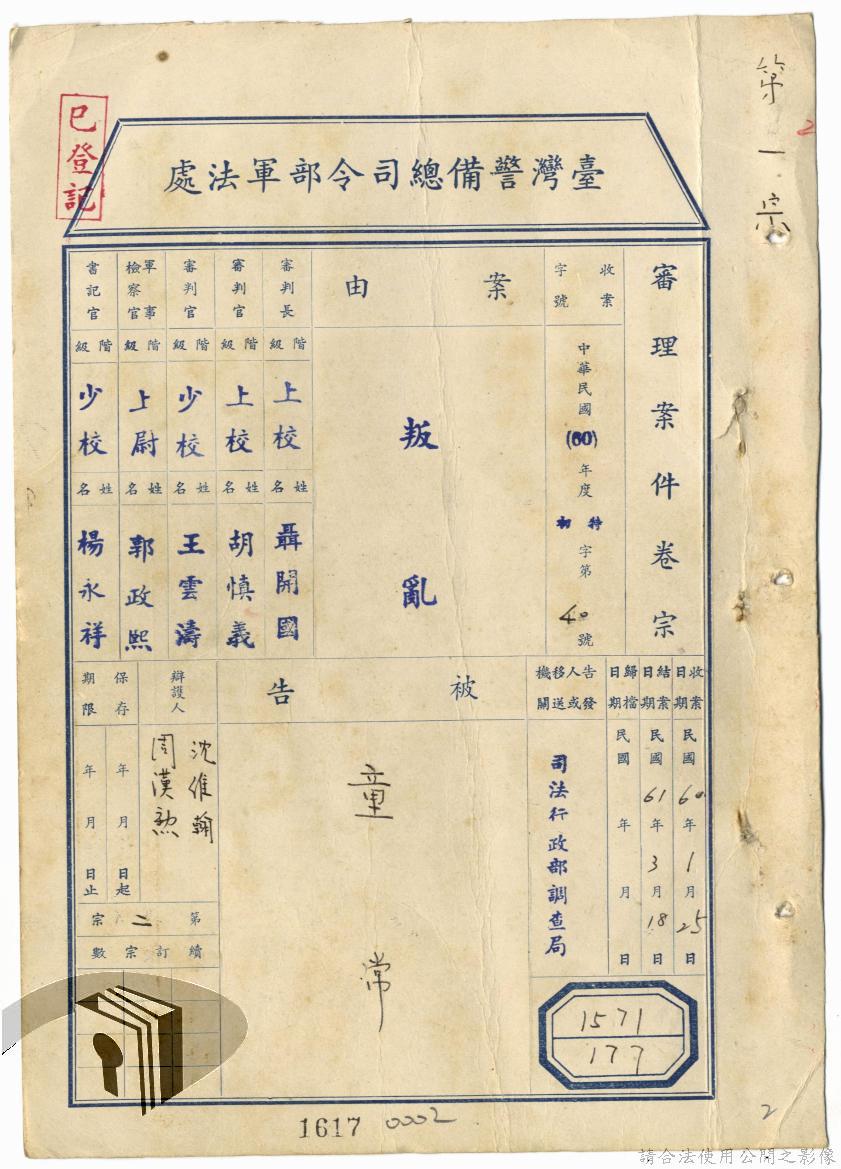 第一宗
2
已登記
臺灣警備總司令部軍法處
審理案件卷宗
收案字號
中華民國(60)年度初特字第40號
案由
叛亂
審判長
階級
上校
姓名
聶開國
審判官
階級
上校
姓名
胡慎義
審判官
階級
少校
姓名
王雲濤
軍事檢察官
階級
上尉
姓名
郭政熙
書記官
階級
少校
姓名
楊永祥
收案日期
民國60年1月25日
結案日期
民國61年3月18日
歸檔日期
民國 年 月 日
告發人或移送機關
司法行政部調查局
被告
童常
辯護人
沈維翰
周漢勲
保存期限
年 月 日起
年 月 日止
第二宗
續訂宗數
1571
177
1617
0002
2
請合法使用公開之影像